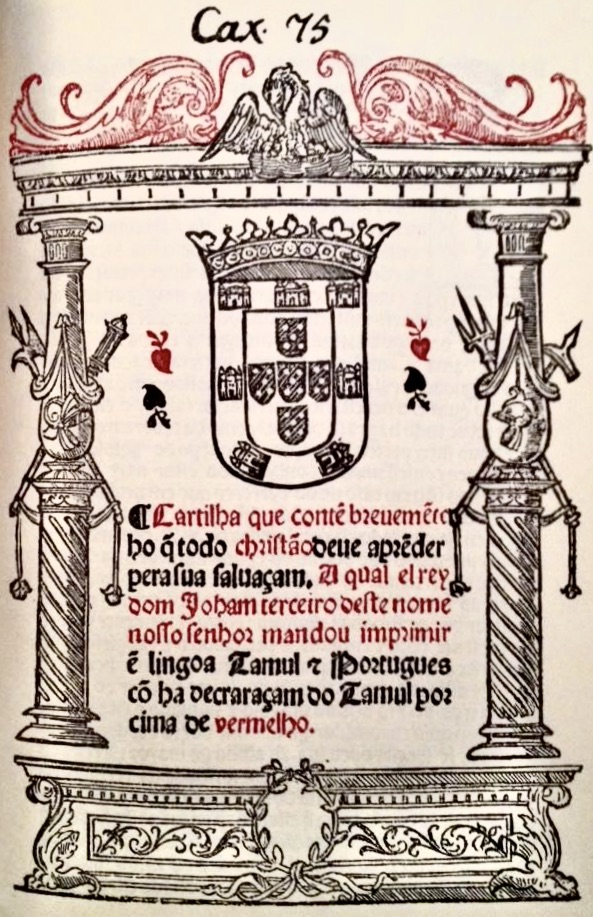 Cax. 75
¶ Cartilha que contẽ breuemẽte
ho q̃ todo christão deue aprẽder
pera sua saluaçam. A qual el rey
dom Joham terceiro deste nome
nosso senhor mandou imprimir
ẽ lingoa Tamul ⁊ Portugues
cõ ha decraraçam do Tamul por
cima de vermelho.